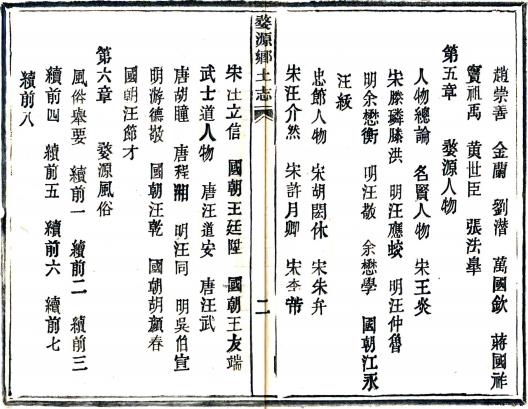 趙崇善　金蘭　劉濳　萬國欽　蔣國祚
竇祖禹　黃世臣　張法臯
第五章　婺源人物
人物總論　名賢人物　宋王炎
宋滕璘滕洪　明汪應蛟　明汪仲魯
明余懋衡　明汪敬　余懋學　國朝江永
汪紱
忠節人物　宋胡閎休　宋朱弁
宋汪介然　宋許月卿　宋李芾
婺源鄉土志
二
宋汪立信　國朝王廷陞　國朝王友端
武士道人物　唐汪道安　唐汪武
唐胡瞳　唐程湘　明汪同　明吳伯宣
明游德敬　國朝汪乾　國朝胡顏春
國朝汪節才
第六章　婺源風俗
風俗舉要　續前一　續前二　續前三
續前四　續前五　續前六　續前七
續前八